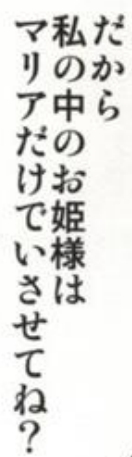 だから
私の中のお姫様は
マリアだけでいさせてね？